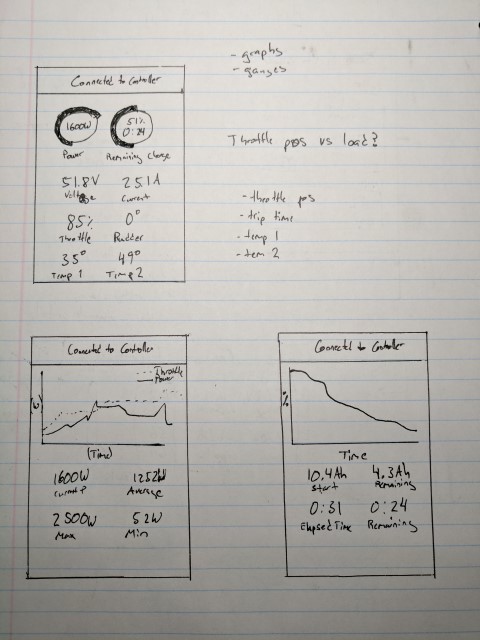 - graphs
- gauges
Connected to Controller
1600W
51%
0:24
Power
Remaining Charge
51.8V 25.1A
Voltage Current
85% 0°
Throttle Rudder
35° 49°
Temp 1 Temp 2
Throttle pos vs load?
- throttle pos
- trip time
- temp 1
- tem 2
Connected to Controller
Throttle
Power
(W)
(Time)
1600W 1252W
Current P Average
2500W 52W
Max Min
Connected to Controller
%
Time
10.4Ah 4.3Ah
Start Remaining
0:31 0:24
Elapsed Time Remaining